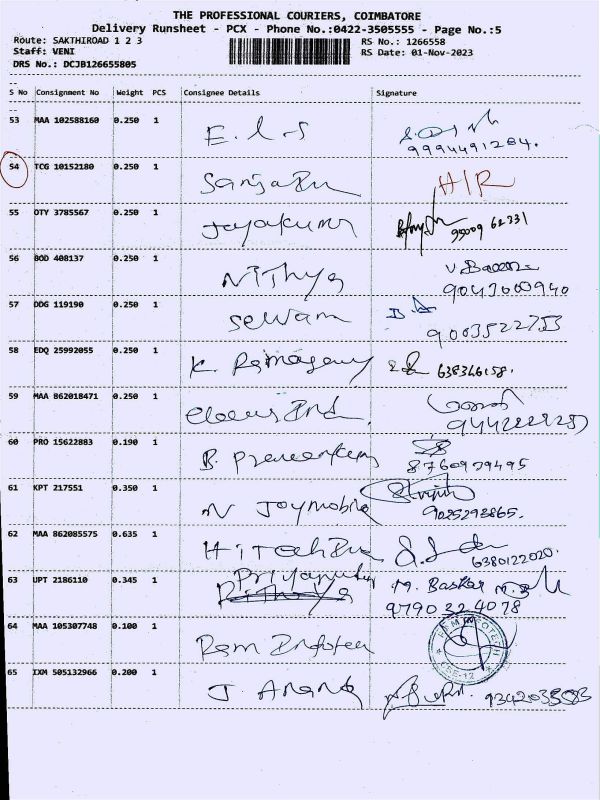 THE PROFESSIONAL COURIERS, COIMBATORE
Delivery Runsheet - PCX - Phone No.:0422-3505555 - Page No.:5
Route: SAKTHIROAD 1 2 3 RS No.: 1266558
Staff: VENI RS Date: 01-Nov-2023
DRS No.: DCJB126655805
S No Consignment No Weight PCS Consignee Details Signature
53 MAA 102588160 0.250 1 E.l-s
9994491284.
54 TCG 10152180 0.250 1 H/R
55 OTY 3785567 0.250 1 Jayakumar
95009 62331
56 BOD 408137 0.250 1 Nithya
9043000940
57 DDG 119190 0.250 1 Selvam
9003522753
58 EDQ 25992055 0.250 1 K. 638346158.
59 MAA 862018471 0.250 1
60 PRO 15622883 0.190 1 B. Praveenkumar
8760979495
61 KPT 217551 0.350 1 N Joymobile
9025298865.
62 MAA 862085575 0.635 1
6380122020.
63 UPT 2186110 0.345 1 Priyanuka M. Baskar
9790324078
64 MAA 105307748 0.100 1 Ram Infotech
65 IXM 505132966 0.200 1 J. Anand 9342035583